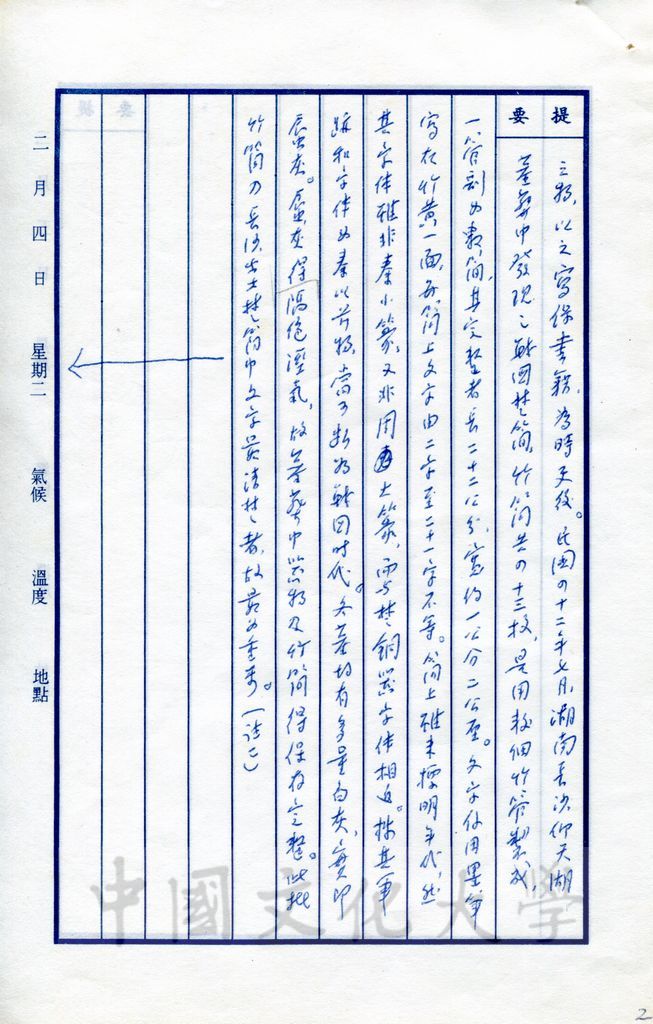 提要
之物,以之寫保書籍,為時更後。民國四十二年七月,湖南長沙仰天湖
墓葬中發現之戰國楚簡,竹簡共四十三枚,是用較細竹管製成,
一管剖為數簡,其完整者長二十二公分,寬約一公分二公厘。文字係用墨筆
寫在竹黃一面,每簡上文字由二字至二十一字不等。簡上雖未標明年代,然
其字体雖非秦小篆,又非周大篆,而与楚銅器字体相近。據其筆
跡和字体为秦以前物,當可断為戰国时代。各墓均有多量白灰,實即
蜃灰。蜃灰得隔絕溼氣,故墓葬中器物及竹簡得保存完整。此批
竹簡乃長沙出土楚簡中文字最清楚者,故最为重要。(註二)
二月四日 星期二 氣候 溫度 地點
中國文化大學
2